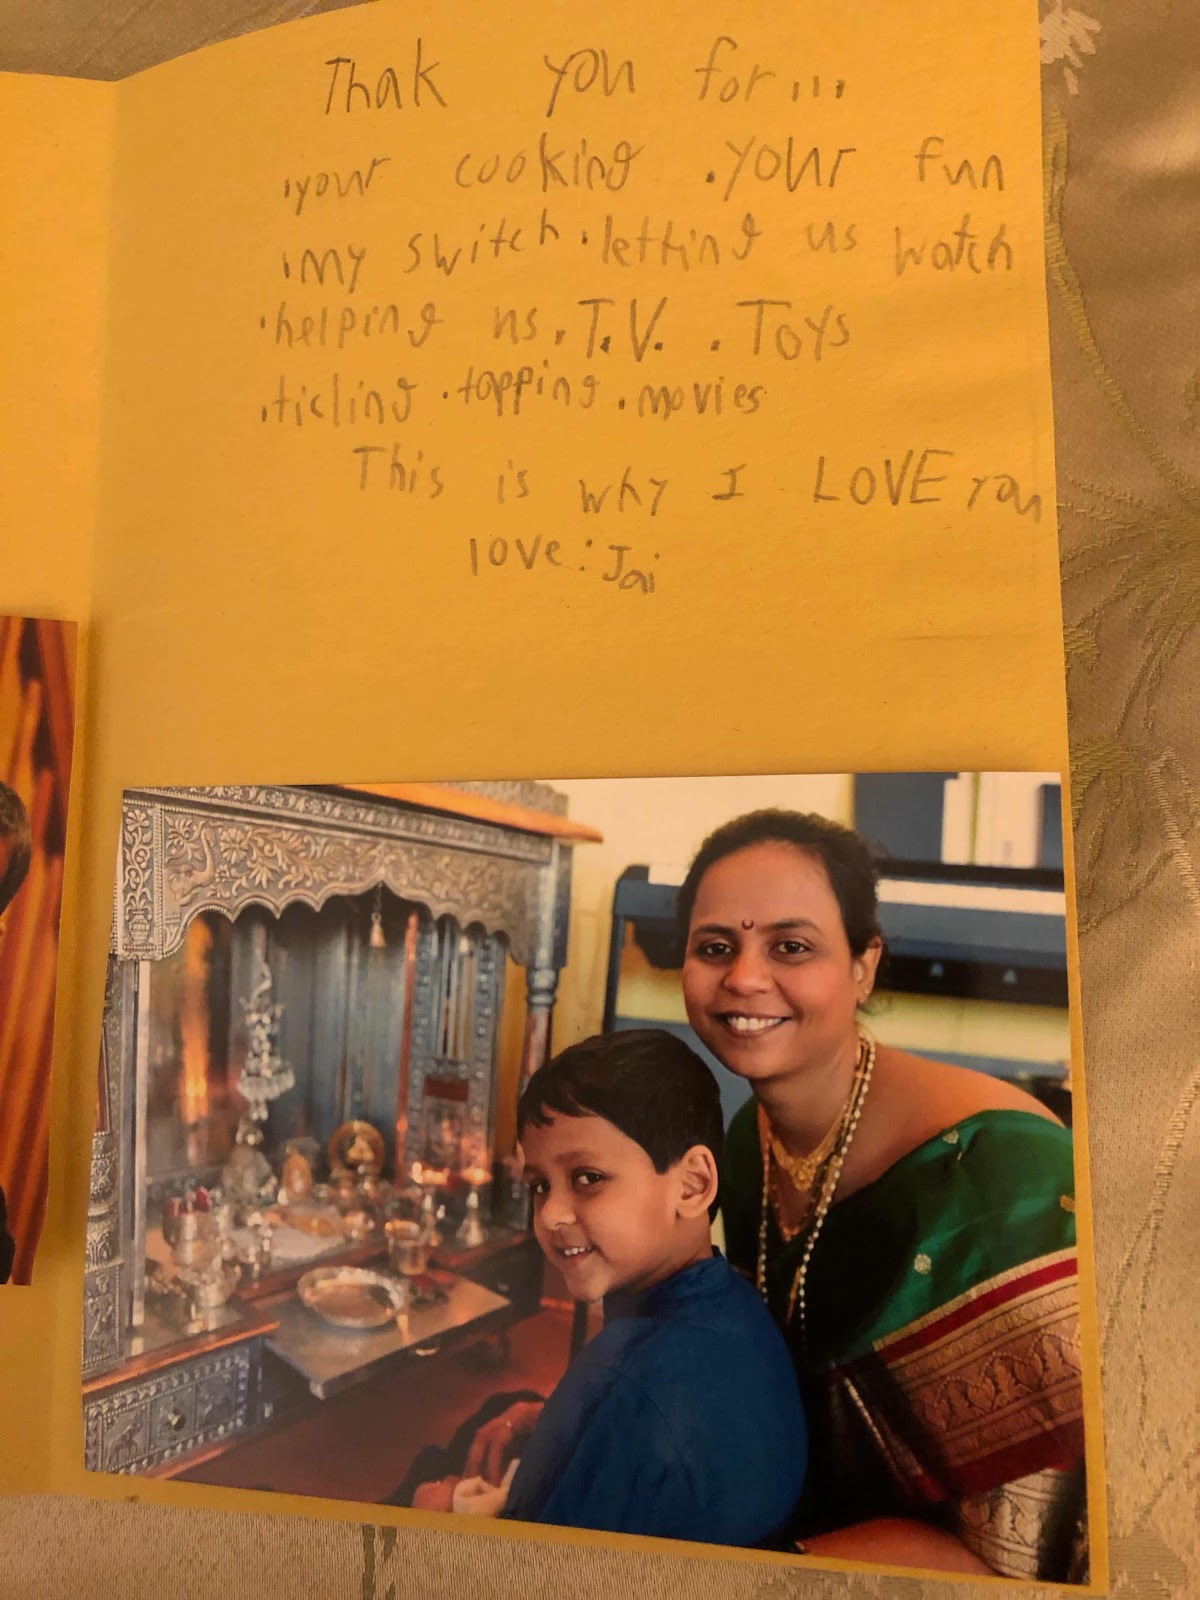 Thak you for...
.your cooking .your fun
.my switch .letting us watch
.helping us .T.V. .Toys
.ticling .tapping .movies
This is why I LOVE you
love: Jai